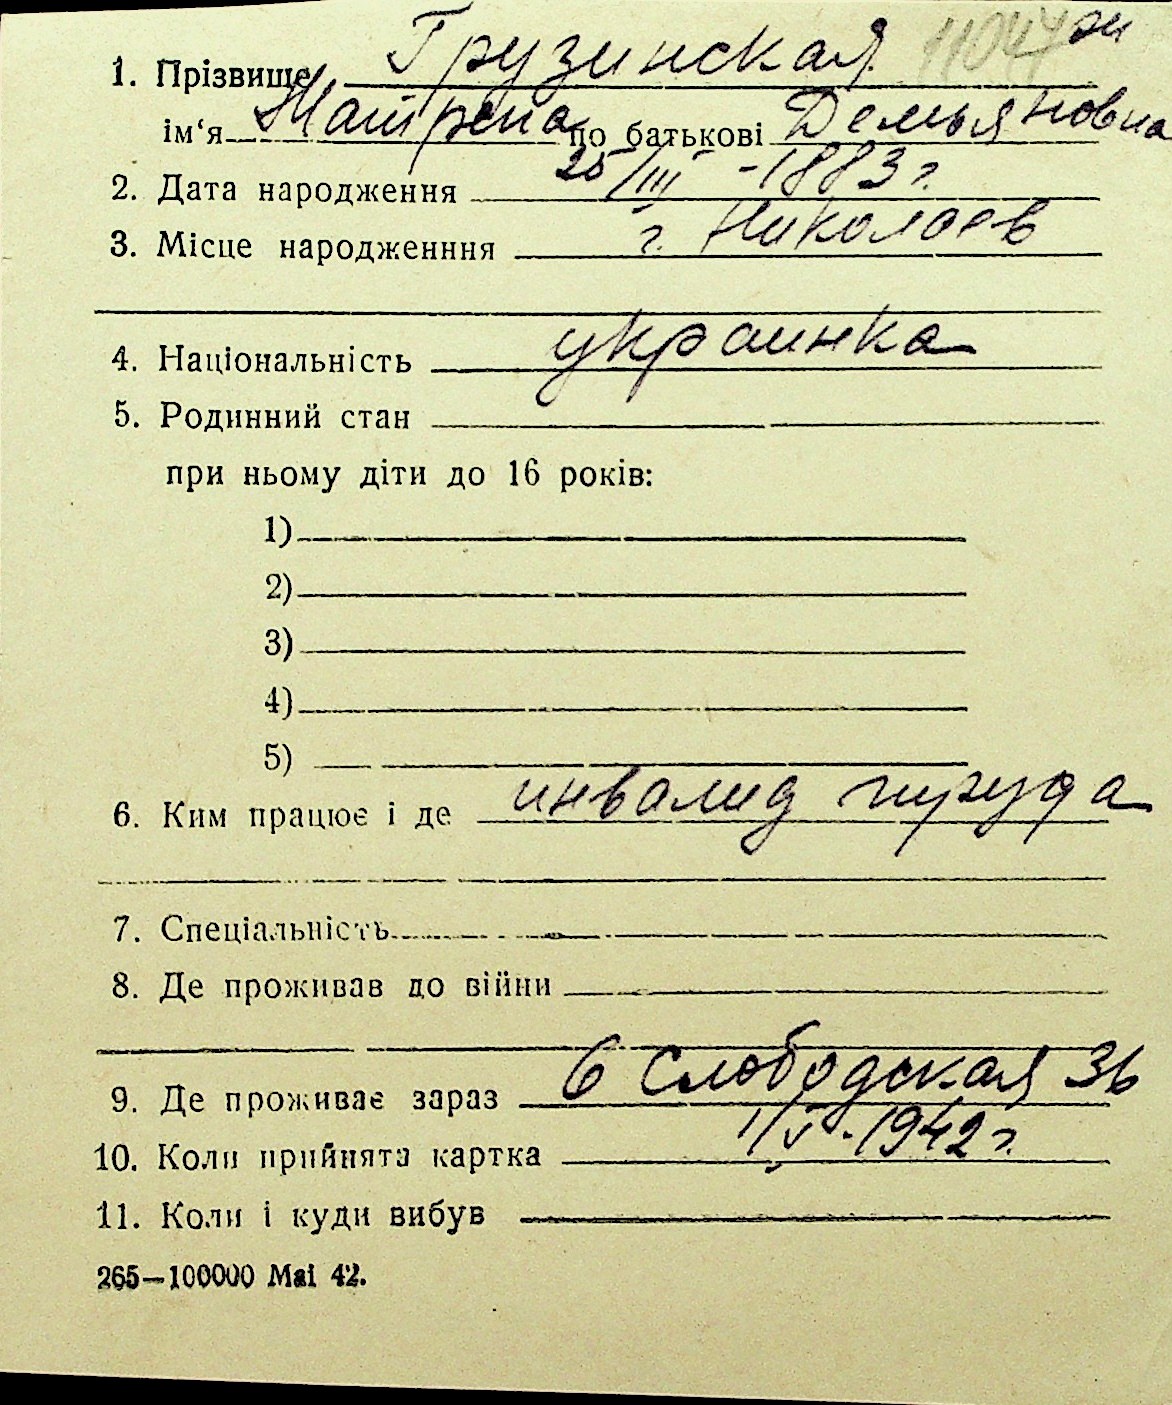 1. Прізвище Грузинская 11044
ім‘я Матрена по батькові Демьяновна
2. Дата народження 25/III - 1883 г.
3. Місце народженння г. Николаев
4. Національність украинка
5. Родинний стан
при ньому діти до 16 років:
1)
2)
3)
4)
5)
6. Ким працює і де инвалид труда
7. Спеціальність
8. Де проживав до війни
9. Де проживає зараз 6 Слободская 36
10. Коли прийнята картка 1/V - 1942 г.
11. Коли і куди вибув
265—100000 Mai 42.